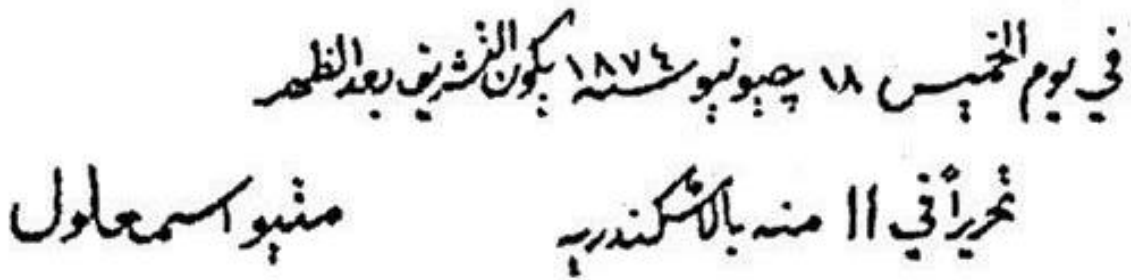 في يوم الخميس ١٨ جيونيو سنه ١٨٧٤ يكون التشريف بعد الظهر
تحريراً في ١١ منه بالاسكندريه منيو اسمعلول